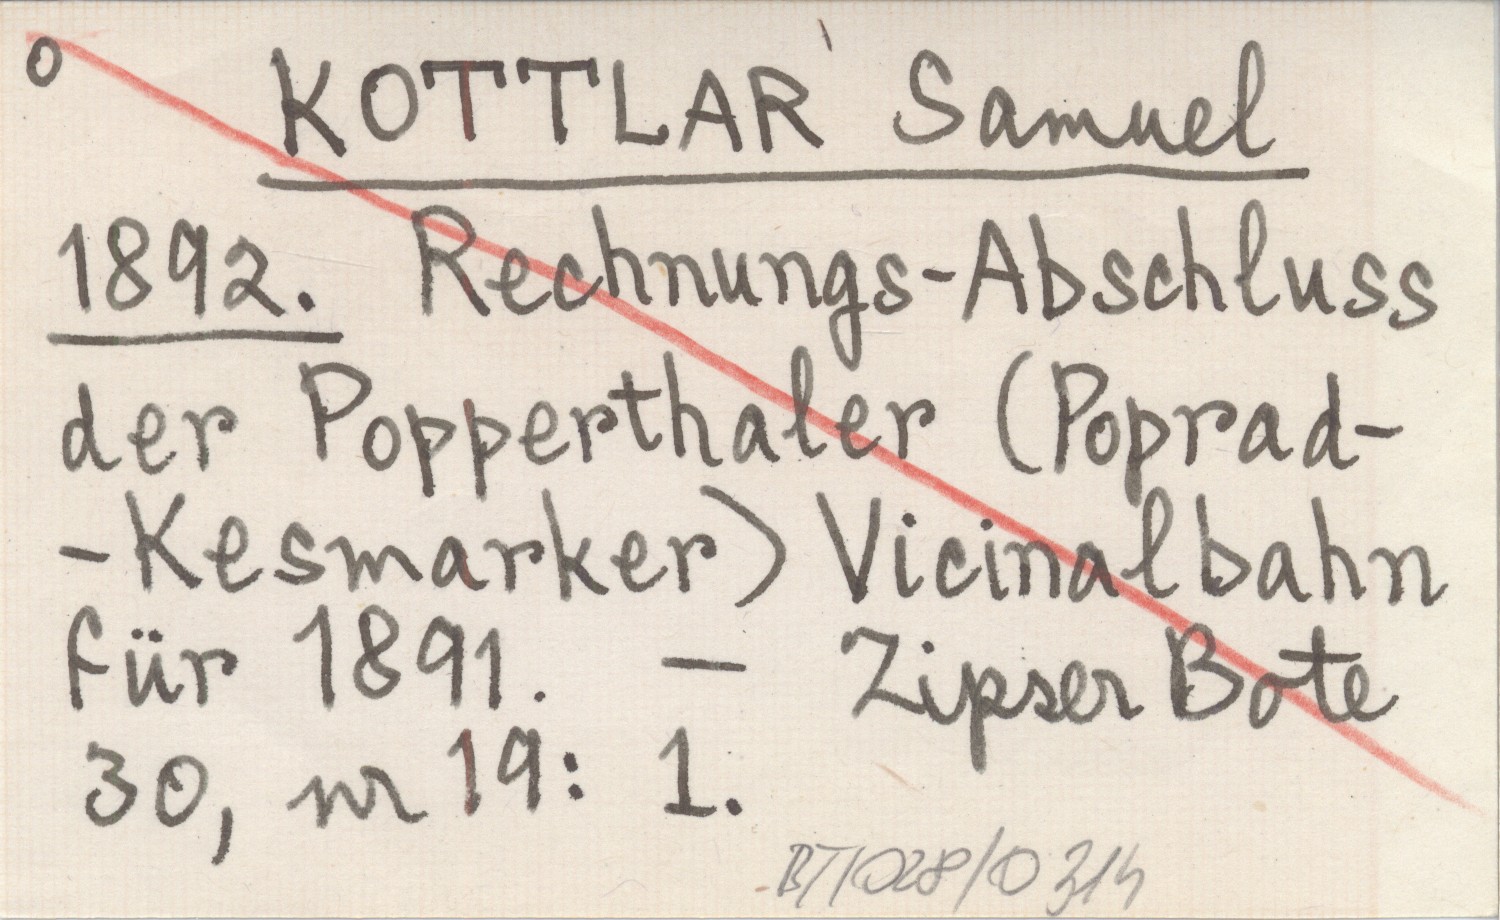 o KOTTLAR Samuel
1892. Rechnungs-Abschluss
der Popperthaler (Poprad-
-Kesmarker) Vicinalbahn
für 1891. — Zipser Bote
30, nr 19: 1.
BT/028/0 314